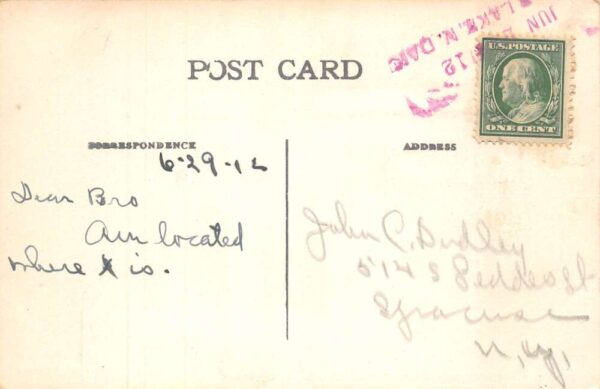 JUN
LAKE, N. DAK
12
U.S. POSTAGE
ONE CENT
POST CARD
CORRESPONDENCE
ADDRESS
6-29-12
Dear Bro
Am located
where X is.
John C. Dudley
514 S Geddes St
Syracuse
N, Y,